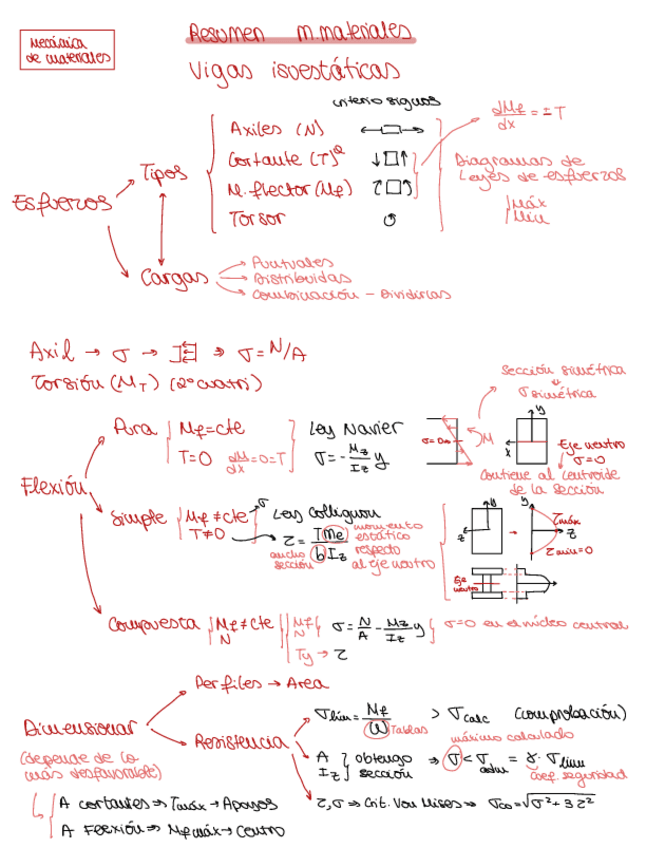 Mecánica
de materiales
Resumen m. materiales
Vigas isoestáticas
criterio signos
Esfuerzos
Tipos
Axiles (N)
Cortante (T)
M. flector (Mf)
Torsor
dMf/dx = ± T
Diagramas de
Leyes de esfuerzos
Máx
Mín
Cargas
Puntuales
Distribuidas
Combinación - Dividirlas
Axil → σ → ⇒ σ = N/A
Torsión (MT) (2º cuatri)
Flexión
Pura
Mf = cte
T = 0 dM/dx = 0 = T
Ley Navier
σ = - Mz/Iz y
σ = 0
M
Sección simétrica
σ simétrica
y
x
Eje neutro
σ = 0
Contiene al centroide
de la sección
Simple
Mf ≠ cte → σ
T ≠ 0
Ley Collignon
τ = T Me / b Iz
momento
estático
respecto
al eje neutro
ancho
sección
y
z
y
τmáx
z
τmin = 0
Eje
neutro
Compuesta
Mf ≠ cte
N
Mf
N
σ = N/A - Mz/Iz y
σ = 0 en el núcleo central
Ty → τ
Dimensionar
(depende de lo
más desfavorable)
Perfiles → Area
Resistencia
σlim = Mf/W > σcalc (comprobación)
Tablas
máximo calculado
A
Iz
obtengo
sección
⇒ σ < σadm = γ · σlim
coef. seguridad
τ, σ ⇒ Crit. Von Mises ⇒ σco = √σ² + 3τ²
A cortantes ⇒ Tmáx → Apoyos
A Flexión ⇒ Mf máx → Centro